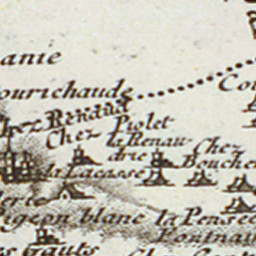 anie
ourichaude
Cou
hez Renaud
Chez Piolet
la Renau-
drie
Chez
Boucher
la Lacasse
erie
igeon blanc
la Pensée
Gauts